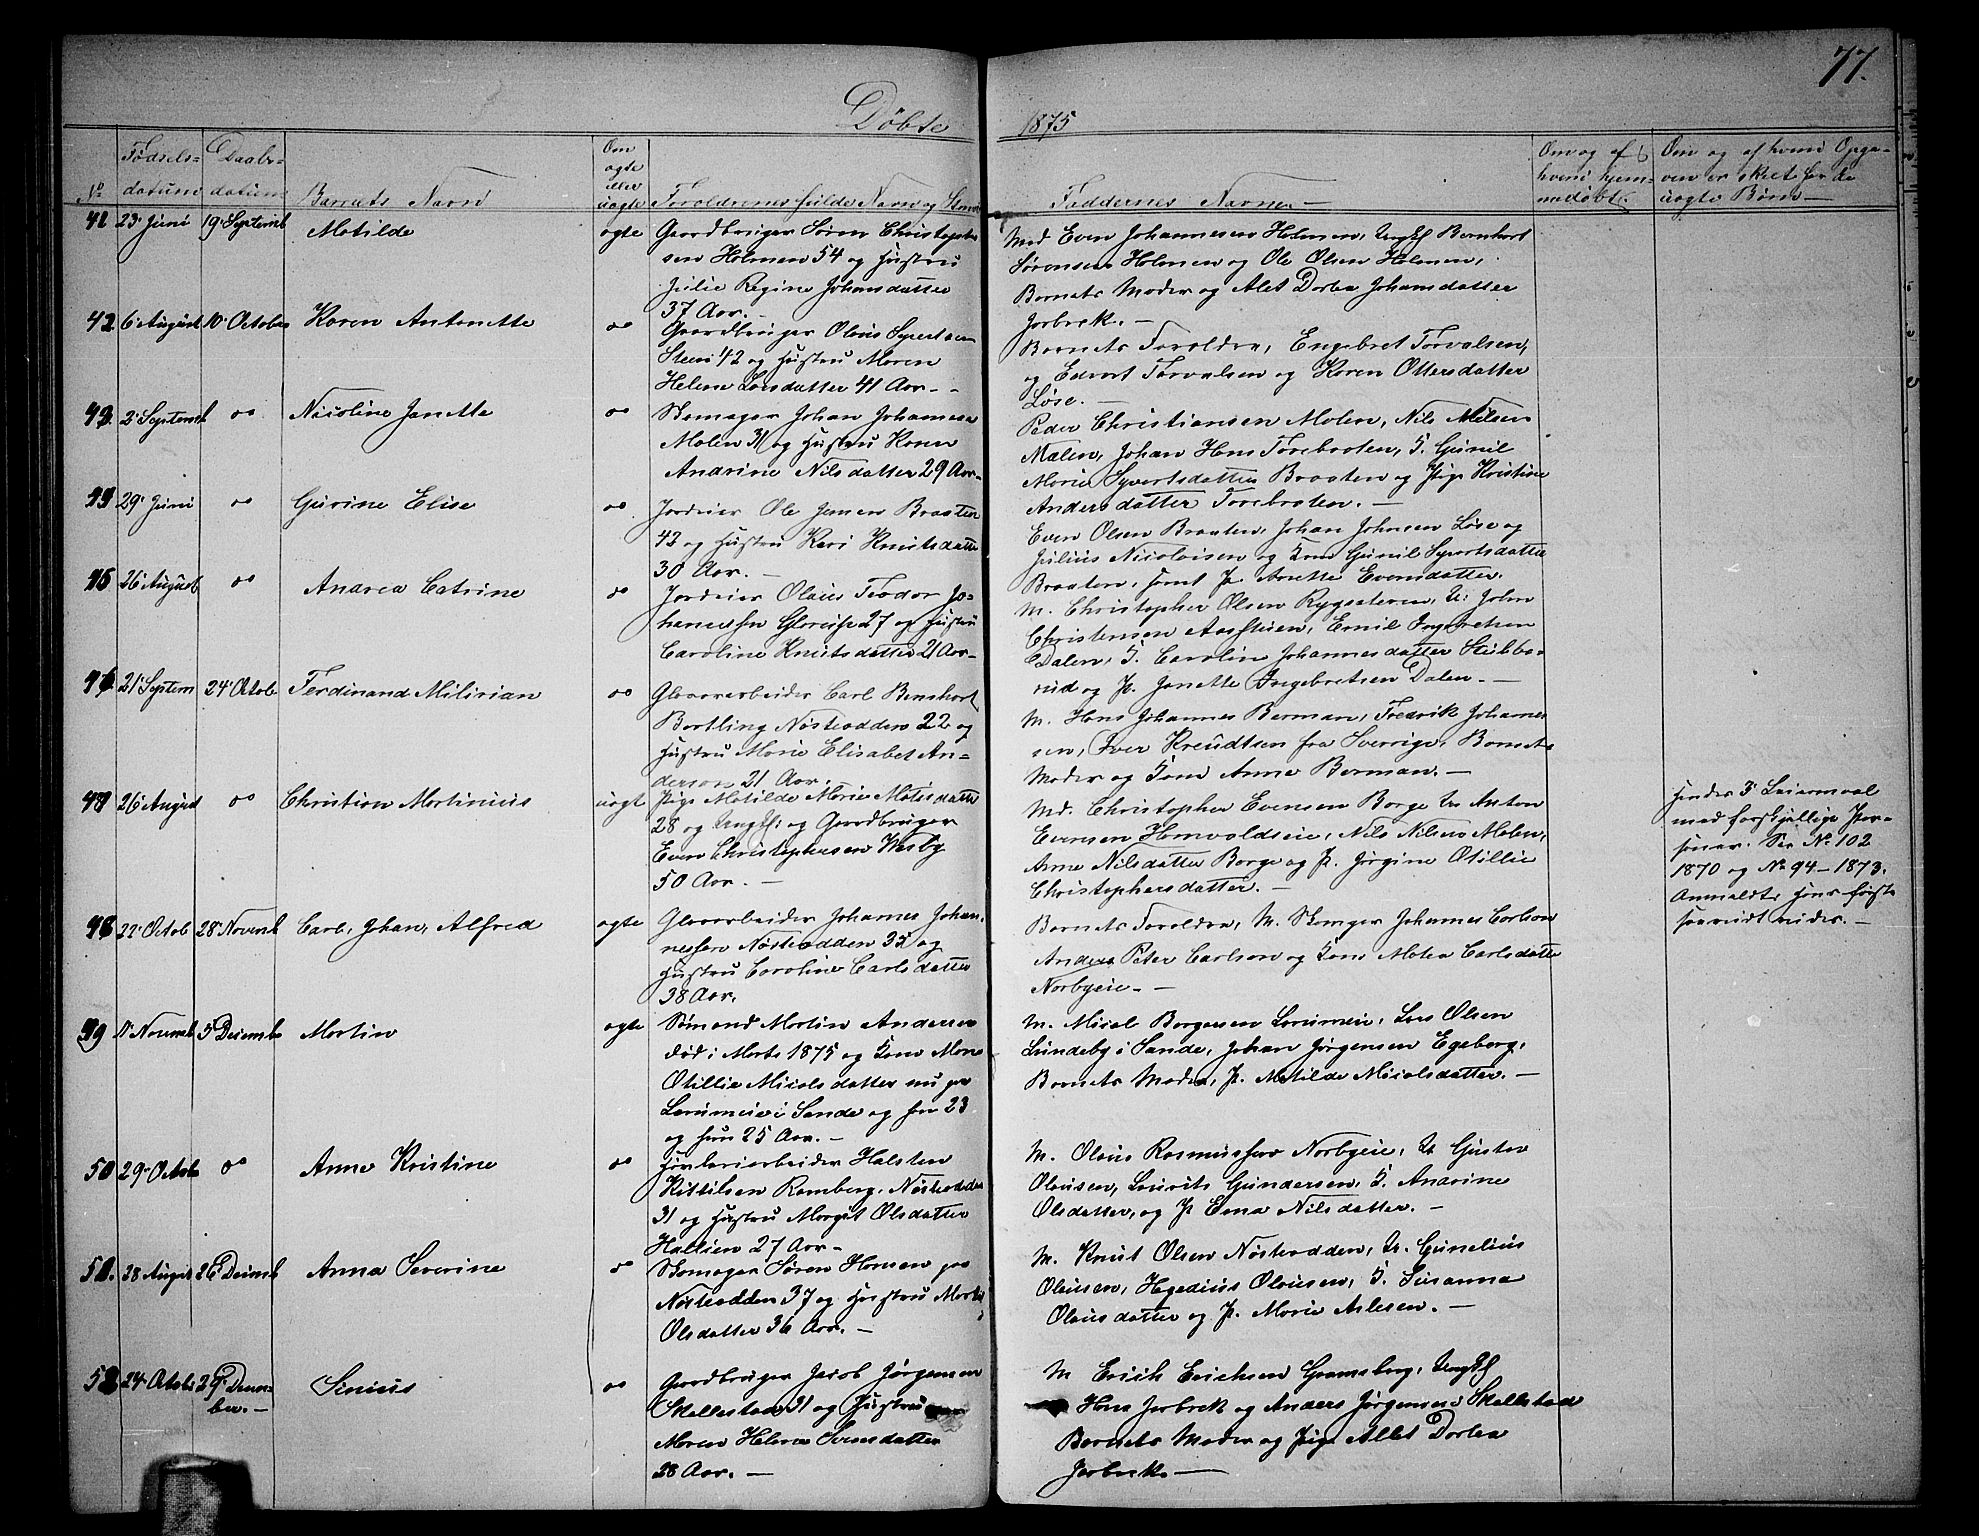 77.
Døbte 1875
No
Fødsels-
datum
Daabs-
datum
Barnets Navn
Om
ægte
eller
uægte
Forældrenes fulde Navn og Stand
Faddernes Navne
Om og af
hvem hjem-
medøbt.
Om og af hvem Opga-
ven er skeet for de
uægte Børn
41 23 Juni 19 Septemb Matilde ægte
Gaardbruger Søren Christophe-
sen Holmen 54 og Hustru
Julie Regine Johansdatter
37 Aar.
Med Even Johannesen Holmen, Ungk Bernhart
Sørensen Holmen og Ole Olsen Holmen,
Barnets Moder og Alet Dorta Johansdatter
Jarbæk.
42 6 August 10 October Karen Antonette do
Gaardbruger Olaus Syvertsen
Steen 42 og Hustru Maren
Helene Larsdatter 41 Aar
Barnets Forældre, Engebret Torvalsen,
og Edvart Torvalsen og Karen Ottersdatter
Løse.
43 2 Septemb do Nicoline Janette do
Skomager Johan Johanesen
Molen 31 og Hustru Karen
Andrine Nilsdatter 29 Aar
Peder Christiansen Molen, Nils Nilsen
Mælen, Johan Hans Torebraten, K. Gunil
Marie Syvertsdatter Braaten og Pige Kristine
Andersdatter Torebraten.
44 29 Juni do Gurine Elise do
Jordeier Ole Jensen Braaten
42 og Hustru Kari Knutsdatter
30 Aar.
Even Olsen Braaten, Johan Johnsen Løse og
Julius Nicolaisen og Kone Gunil Syvertsdatter
Braaten, samt P. Anette Evensdatter.
45 26 August do Andrea Catrine do
Jordeier Olaus Teodor Jo-
hanessen 27 og Hustru
Caroline Knutsdatter 21 Aar
M. Christopher Olsen Rygsæteren, U. John
Christensen Aasstuen, Emil Ingebretsen
Dalen, K. Caroline Johannesdatter Stubbe-
rud og P. Janette Ingebretsen Dalen.
46 21 Septem 24 Octob Ferdinand Milivian do
Glasarbeider Carl Bernhart
Bortling Nøsteodden 22 og
Hustru Marie Elisabet An-
derson 21 Aar.
M. Hans Johannes Berman, Fredrik Johanne-
sen, Iver Kreudtsen fra Sverrige, Barnets
Moder og Kone Anne Berman.
47 26 August do Christian Martinius uægt
Pige Matilde Marie Matisdatter
28 og Ungk: og Gaardbruger
Even Christophersen Væsby
50 Aar.
Md. Christopher Evensen Borge Un Anton
Evensen Homvoldseie, Nils Nilsen Molen,
Anne Nilsdatter Borge og P. Jørgine Otillie
Christophersdatter.
hendes 3 Leiermaal
med forskjellige Per-
soner. See No 102
1870 og No 94-1873.
Anmeldte hans første
saavidt vides.
48 22 Octob 28 Novemb Carl, Johan, Alfred ægte
Glasarbeider Johanes Johan-
nessen Nøsteodden 35 og
Hustru Caroline Carlsdatter
38 Aar.
Barnets Forældre, M. Skomager Johannes Carlson
Anders Peter Carlson og Kone Matea Carlsdatter
Norbyeie.
49 11 Novemb 5 Desemb Martin ægte
Sømand Martin Andersen
død i Marts 1875 og Kone Maren
Otillie Micalsdatter nu paa
Lerumeie i Sande og han 23
og hun 25 Aar.
M. Mical Borgersen Lerumeie, Lars Olsen
Lundeby i Sande, Johan Jørgensen Egeborg,
Barnets Moder, P. Matilde Micalsdatter.
50 29 Octob do Anne Kristine do
Halsten
Kittilsen Ramberg, Nøsteodden
31 og Hustru Margit Olsdatter
Hallien 27 Aar
M. Olaus Rasmussen Norbyeie, U Gustav
Olausen, Laurits Gundersen, K. Andrine
Olsdatter, og P Ema Nilsdatter.
51. 28 August 26 Desemb Anna Severine do
Skomager Søren Hansen paa
Nøsteodden 37 og Hustru
Olsdatter 36 Aar.
M. Knut Olsen Nøsteodden, U. Gunelius
Olausen, Hegedius Olausen, K. Susanna
Olausdatter og P. Marie Aslesen.
52 24 Octob Desem-
ber. Sinius do
Gaardbruger Jacob Jørgensen
Skallestad 31 og Hustru
Maren Helene Svensdatter
28 Aar.
M Erich Erichsen Gramsborg, Ungk
Hans Jarbæk og Anders Jørgensen Skallestad
Barnets Moder og Pige Allet Dortea
Jarbæk